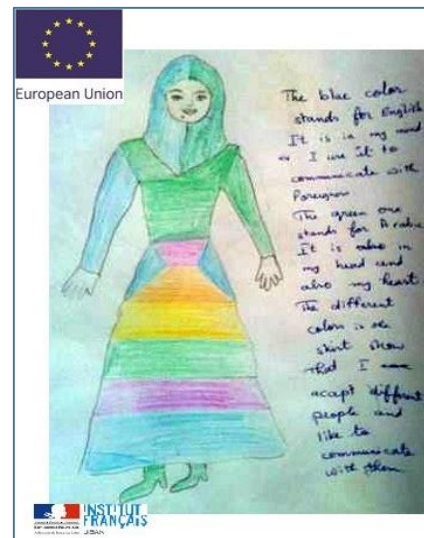 European Union
The blue color
stands for English
It is in my mind
I use it to
communicate with
Foreigners
The green one
stands for Arabic
It is also in
my head and
also my heart
The different
colors in the
skirt show
that I
acapt different
people and
like to
communicate
with them
INSTITUT
FRANÇAIS
LIBAN